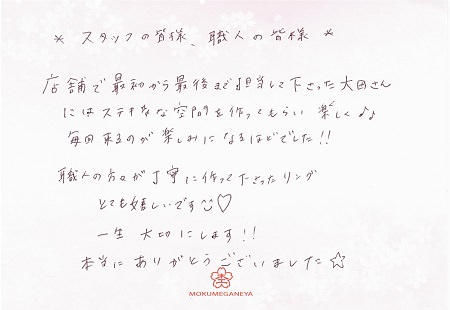 * スタッフの皆様、職人の皆様 *
店舗で最初から最後まで担当して下さった大田さん
にはステキな空間を作ってもらい楽しく♪♪
毎回来るのが楽しみになるほどでした!!
職人の方々が丁寧に作って下さったリング
とても嬉しいです☺♡
一生大切にします!!
本当にありがとうございました☆
MOKUMEGANEYA